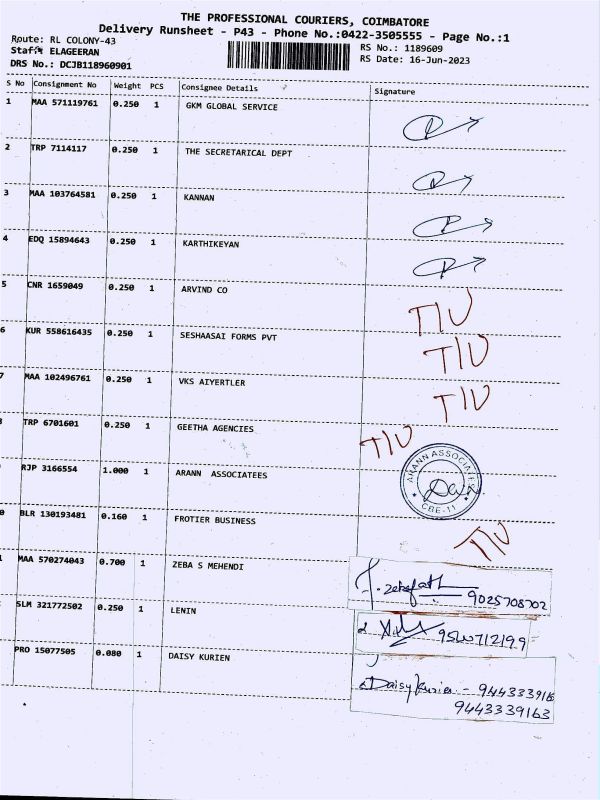 THE PROFESSIONAL COURIERS, COIMBATORE
Delivery Runsheet - P43 - Phone No.:0422-3505555 - Page No.:1
Route: RL COLONY-43
RS No.: 1189609
Staff: ELAGEERAN
RS Date: 16-Jun-2023
DRS No.: DCJB118960901
S No Consignment No Weight PCS Consignee Details Signature
1 MAA 571119761 0.250 1 GKM GLOBAL SERVICE
2 TRP 7114117 0.250 1 THE SECRETARICAL DEPT
3 MAA 103764581 0.250 1 KANNAN
4 EDQ 15894643 0.250 1 KARTHIKEYAN
5 CNR 1659049 0.250 1 ARVIND CO T/U
6 KUR 558616435 0.250 1 SESHAASAI FORMS PVT T/U
7 MAA 102496761 0.250 1 VKS AIYERTLER T/U
TRP 6701601 0.250 1 GEETHA AGENCIES T/U
RJP 3166554 1.000 1 ARANN ASSOCIATEES ARANN ASSOCIATES CBE-11
0 BLR 130193481 0.160 1 FROTIER BUSINESS T/U
MAA 570274043 0.700 1 ZEBA S MEHENDI 9025708702
SLM 321772502 0.250 1 LENIN
PRO 15077505 0.080 1 DAISY KURIEN Daisy Kurien - 9443339163
9443339163